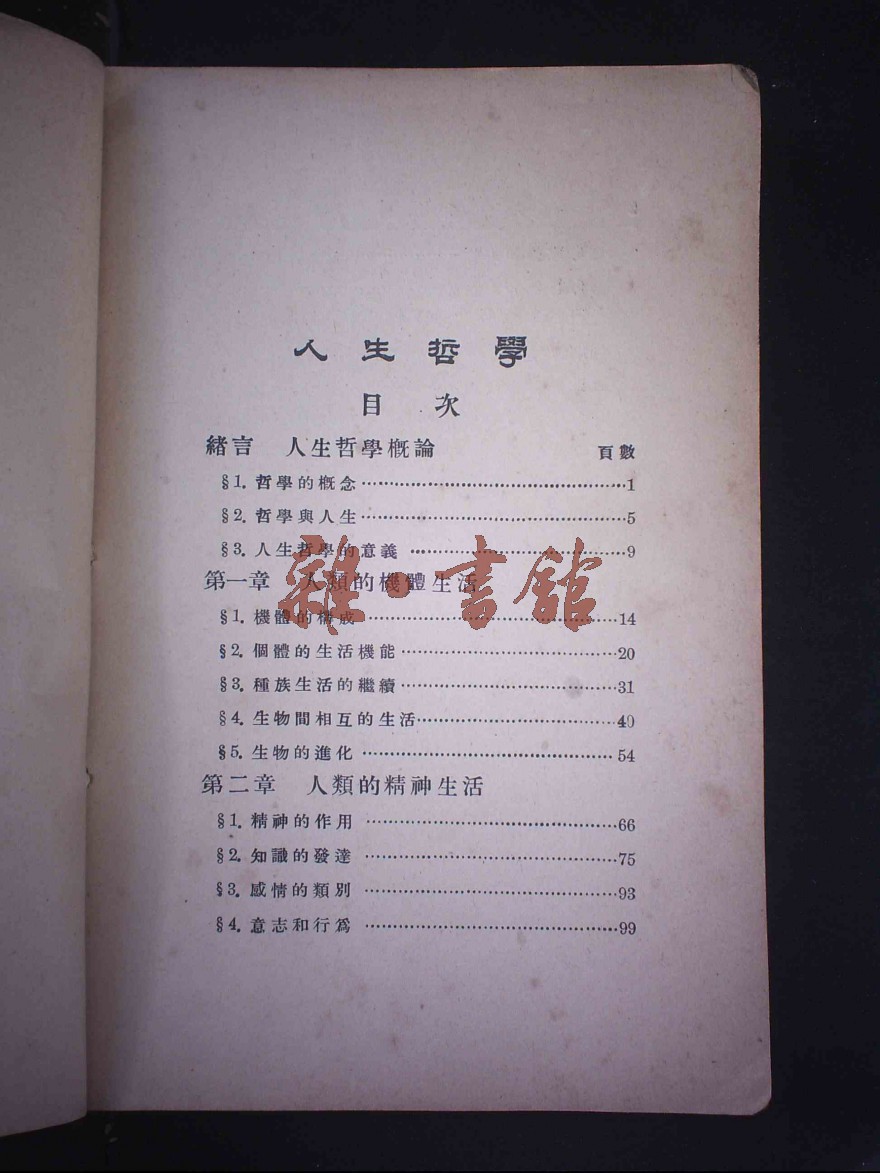 人生哲學
目次
緒言 人生哲學概論 頁數
§1. 哲學的概念……………………1
§2. 哲學與人生……………………5
§3. 人生哲學的意義……………………9
第一章 人類的機體生活
雜·書館
§1. 機體的構成……………………14
§2. 個體的生活機能……………………20
§3. 種族生活的繼續……………………31
§4. 生物間相互的生活……………………40
§5. 生物的進化……………………54
第二章 人類的精神生活
§1. 精神的作用……………………66
§2. 知識的發達……………………75
§3. 感情的類別……………………93
§4. 意志和行爲……………………99